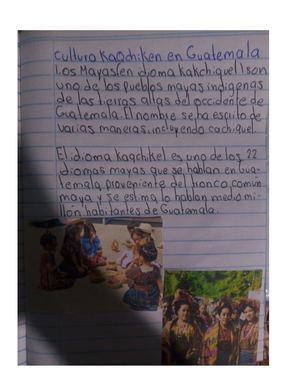 cultura kaqchiken en Guatemala
Los Mayas (en idioma kakchiquel) son
uno de los pueblos mayas indigenas
de las tierras altas del occidente de
Guatemala. El nombre se ha escrito de
varias maneras, incluyendo cachiquel.
El idioma kaqchikel es uno de los 22
idiomas mayas que se hablan en Gua-
temala, proveniente del tronco común
maya y se estima lo hablan medio mi-
llón habitantes de Guatamala.